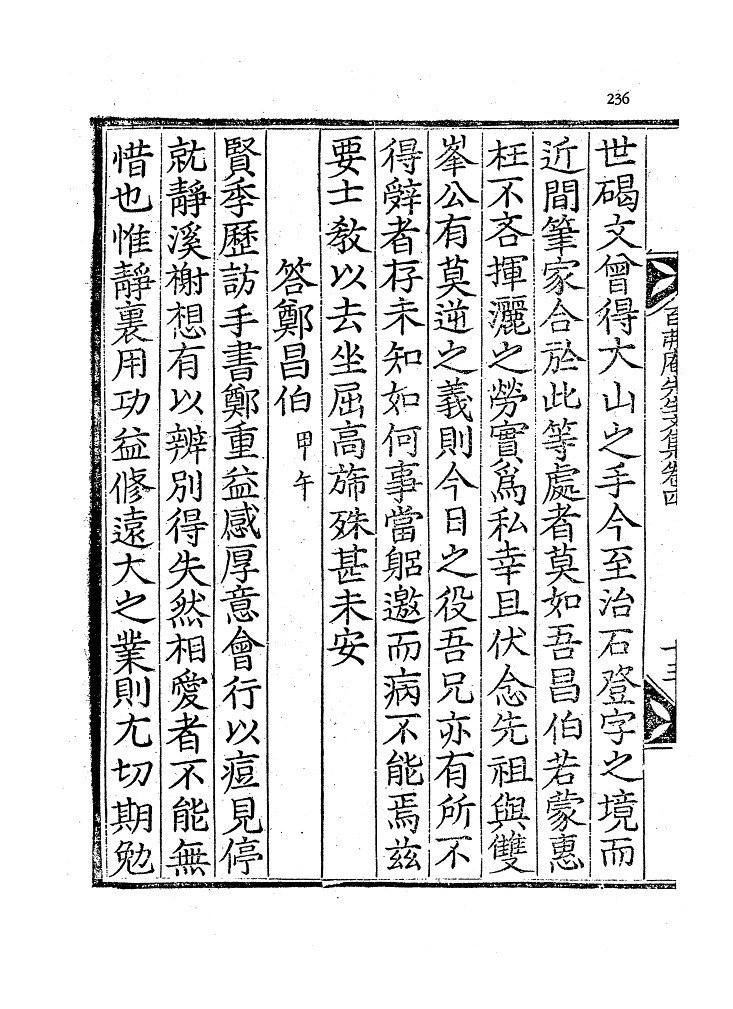 236
百弗庵先生文集卷四
十三
世碣文曾得大山之手今至治石登字之境而
近間筆家合於此等處者莫如吾昌伯若蒙惠
枉不吝揮灑之勞實爲私幸且伏念先祖與雙
峯公有莫逆之義則今日之役吾兄亦有所不
得辭者存未知如何事當躬邀而病不能焉茲
要士教以去坐屈高旆殊甚未安
答鄭昌伯 甲午
賢季歷訪手書鄭重益感厚意會行以痘見停
就靜溪榭想有以辨別得失然相愛者不能無
惜也惟靜裏用功益修遠大之業則尤切期勉